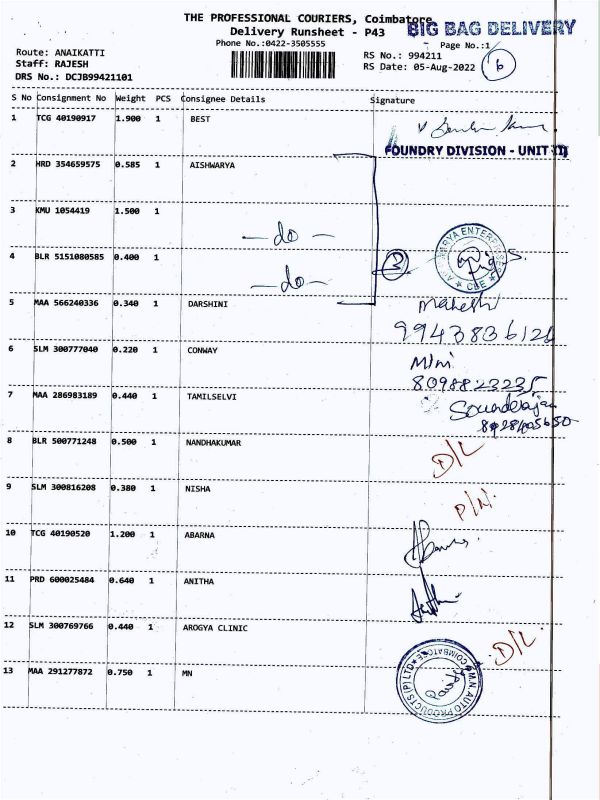 THE PROFESSIONAL COURIERS, Coimbatore
BIG BAG DELIVERY
Delivery Runsheet - P43
Phone No.:0422-3505555
Page No.:1
Route: ANAIKATTI
Staff: RAJESH
DRS No.: DCJB99421101
RS No.: 994211
RS Date: 05-Aug-2022
6
S No Consignment No Weight PCS Consignee Details Signature
1 TCG 40190917 1.900 1 BEST
FOUNDRY DIVISION - UNIT (I)
2 HRD 354659575 0.585 1 AISHWARYA
3 KMU 1054419 1.500 1
-do-
4 BLR 5151080585 0.400 1
-do-
3
5 MAA 566240336 0.340 1 DARSHINI
Mahesh
6 SLM 300777040 0.220 1 CONWAY
Mini
8098823235
7 MAA 286983189 0.440 1 TAMILSELVI
Sounderajan
8 BLR 500771248 0.500 1 NANDHAKUMAR
D/L
9 SLM 300816208 0.380 1 NISHA
P/N.
10 TCG 40190520 1.200 1 ABARNA
11 PRD 600025484 0.640 1 ANITHA
12 SLM 300769766 0.440 1 AROGYA CLINIC
D/L
13 MAA 291277872 0.750 1 MN
M.N.AUTO PRODUCTS (P) LTD COIMBATORE